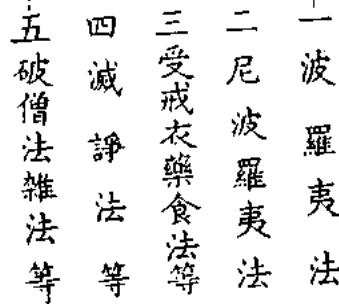 一波羅夷法
二尼波羅夷法
三受戒衣藥食法等
四滅諍法等
五破僧法雑法等